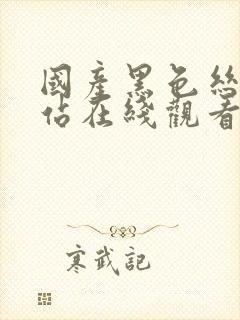 國產黑色絲
佔在綫觀看
寒武記